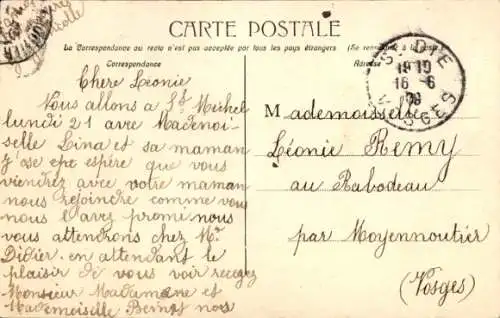 CARTE POSTALE
La Correspondance au recto n'est pas acceptée par tous les pays étrangers (Se renseigner à la poste)
Correspondance
Adresse
Chere Léonie
Nous allons a St Michel
lundi 21 avec Mademoi-
selle Lina et sa maman
j'ose epe espére que vous
viendrez avec votre maman
nous rejoindre comme vous
nous l'avez promi nous
vous attendrons chez Mr
Didier en attendant le
plaisir de vous voir recevez
Monsieur Madamane et
Mademoiselle nos
Mademoisselle
Léonie Remy
au Rabodeau
par Moyennoutier
(Vosges)
19 10
16 - 6
09
VOSGES